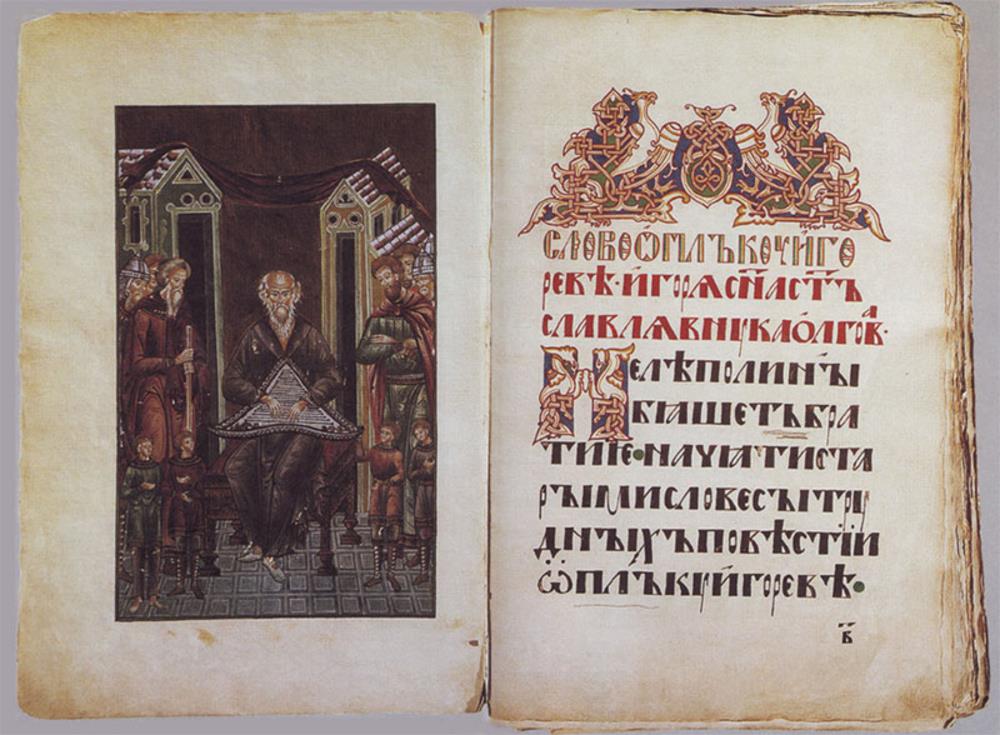 СЛОВОѠПЛЪКОУИГО
РЕВѢ·ИГОРѦСН҃АСТ҃Ъ
СЛАВЛѦВНꙊКАОЛГОВᲂⷶ·
НЕЛѢПОЛИНЫ
БꙖШЕТЪБРА
ТИѤ•НАЧꙖТИСТА
РЫМИСЛОВЕСЫТРꙊ
ДНЫХЪПОВѢСТІИ
ѠПЛЪКꙊИГОРЕВѢ•
в҃